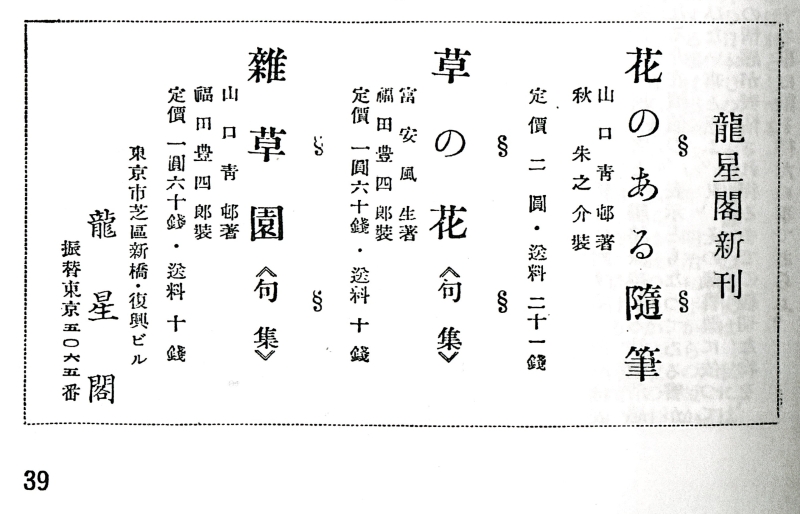 龍星閣新刊
§ §
花のある隨筆
山口靑邨著
秋朱之介裝
定價二圓・送料二十一錢
§ §
草の花《句集》
富安風生著
福田豊四郎裝
定價一圓六十錢・送料十錢
§ §
雜草園《句集》
山口靑邨著
福田豊四郎裝
定價一圓六十錢・送料十錢
東京市芝區新橋・復興ビル
龍星閣
振替東京五〇六五番
39